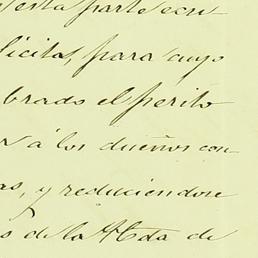 esta parte recu-
licita, para cuyo
brado el perito
r á los dueños con-
as, y reduciendose
s de la Hda de